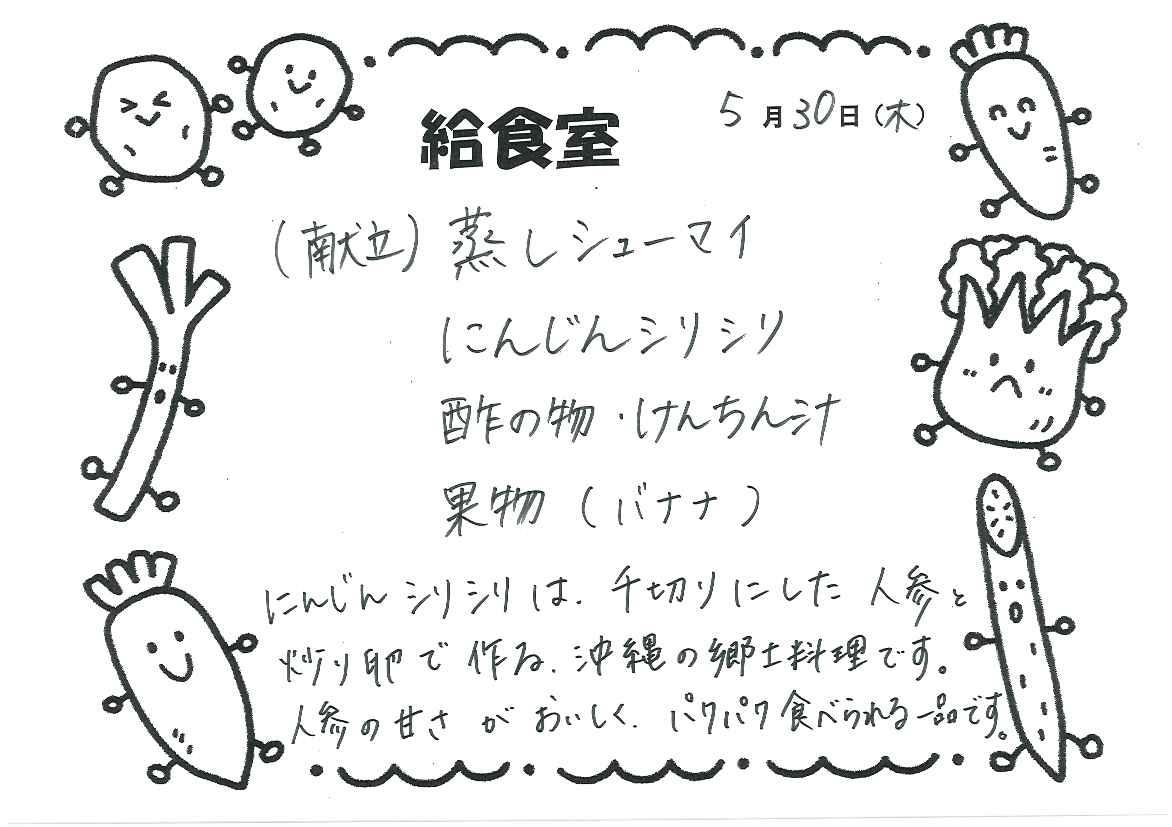 給食室
5月30日(木)
(献立)蒸しシューマイ
にんじんシリシリ
酢の物・けんちん汁
果物(バナナ)
にんじんシリシリは、千切りにした人参と
炒り卵で作る、沖縄の郷土料理です。
人参の甘さがおいしく、パクパク食べられる一品です。